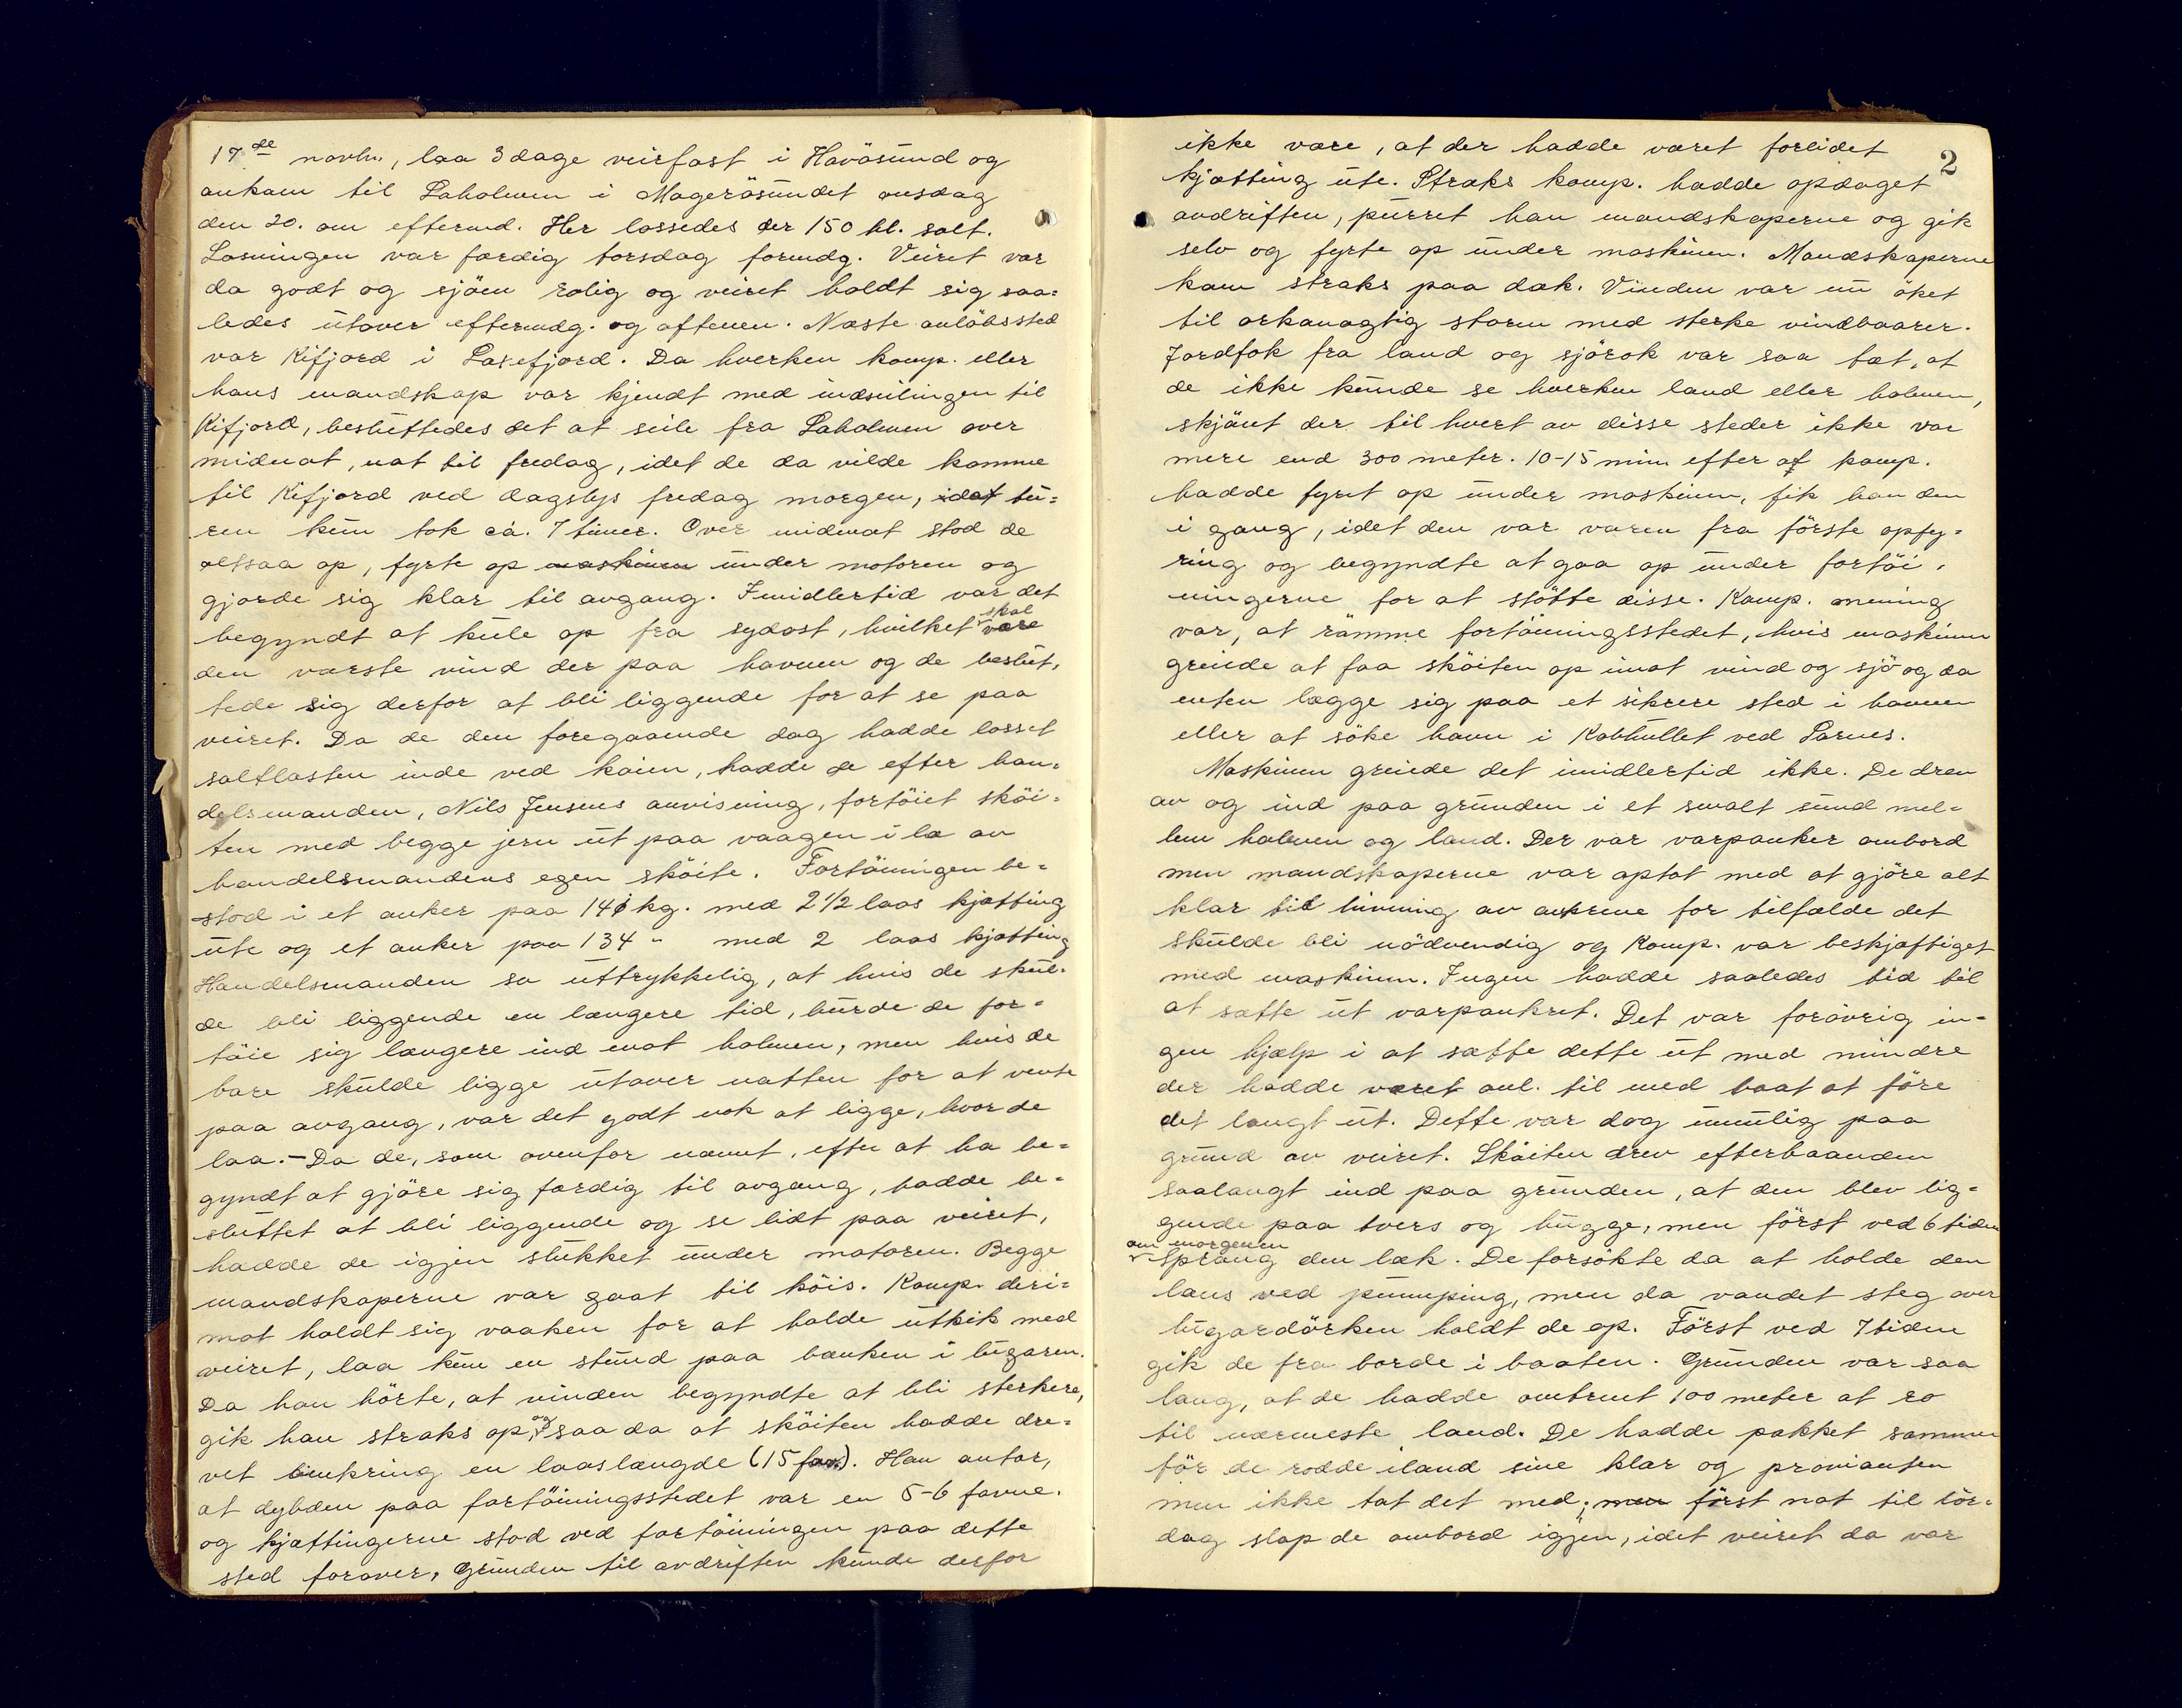 17de novbr., laa 3 dage veirfast i Havösund og
ankom til Saholmen i Magerösundet onsdag
den 20. om eftermd. Her lossedes der 150 hl. salt.
Losningen var færdig torsdag formdg. Veiret var
da godt og sjöen rolig og veiret holdt sig saa-
ledes utover eftermdg. og aftenen. Næste anlöbssted
var Kifjord i Laxefjord. Da hverken komp. eller
hans mandskap var kjendt med indseilingen til
Kifjord, besluttedes det at seile fra Saholmen over
midnat, nat til fredag, idet de da vilde komme
til Kifjord ved dagslys fredag morgen, idet tu-
ren kun tok ca. 7 timer. Over midnat stod de
altsaa op, fyrte op maskinen under motoren og
gjorde sig klar til avgang. Imidlertid var det
begyndt at kule op fra sydost, hvilket skal være
den værste vind der paa havnen og de beslut-
tede sig derfor at bli liggende for at se paa
veiret. Da de den foregaaende dag hadde losset
saltlasten inde ved kaien, hadde de efter han-
delsmanden, Nils Jensens anvisning, fortöiet sköi-
ten med begge jern ut paa vaagen i læ av
handelsmandens egen sköite. Fortöiningen be-
stod i et anker paa 141 kg. med 2 1/2 laas kjætting
ute og et anker paa 134 " med 2 laas kjætting
Handelsmanden sa uttrykkelig, at hvis de skul-
de bli liggende en længere tid, burde de for-
töie sig længere ind mot holmen, men hvis de
bare skulde ligge utover natten for at vente
paa avgang, var det godt nok at ligge, hvor de
laa. - Da de, som ovenfor nævnt, efter at ha be-
gyndt at gjöre sig færdig til avgang, hadde be-
sluttet at bli liggende og se lidt paa veiret,
hadde de igjen slukket under motoren. Begge
mandskaperne var gaat til köis. Komp. deri-
mot holdt sig vaaken for at holde utkik med
veiret, laa kun en stund paa bænken i lugaren.
Da han hörte, at vinden begyndte at bli sterkere,
gik han straks op og saa da at sköiten hadde dre-
vet omkring en laaslængde (15 favn). Han antar,
at dybden paa fortöiningsstedet var en 5-6 favne.
og kjættingerne stod ved fortöiningen paa dette
sted forover, Grunden til avdriften kunde derfor
2
ikke være, at der hadde været forlidet
kjætting ute. Straks komp. hadde opdaget
avdriften, purret han mandskaperne og gik
selv og fyrte op under maskinen. Mandskaperne
kom straks paa dæk. Vinden var nu öket
til orkanagtig storm med sterke vindbaarer.
Jordfok fra land og sjörok var saa tæt, at
de ikke kunde se hverken land eller holmen,
skjönt der til hvert av disse steder ikke var
mere end 300 meter. 10-15 min. efter at komp.
hadde fyrt op under maskinen, fik han den
i gang, idet den var varm fra förste opfy-
ring og begyndte at gaa op under fortöi-
ningerne for at stötte disse. Komp. mening
var, at römme fortöiningsstedet, hvis maskinen
greiede at faa sköiten op imot vind og sjö og da
enten lægge sig paa et sikrere sted i havnen
eller at söke havn i Kobhullet ved Sarnes.
Maskinen greiede det imidlertid ikke. De drev
av og ind paa grunden i et smalt sund mel-
lem holmen og land. Der var varpanker ombord
men mandskaperne var optat med at gjöre alt
klar til hivning av ankrene for tilfælde det
skulde bli nödvendig og Komp. var beskjæftiget
med maskinen. Ingen hadde saaledes tid til
at sætte ut varpankret. Det var forövrig in-
gen hjælp i at sætte dette ut med mindre
der hadde været anl. til med baat at före
det langt ut. Dette var dog umulig paa
grund av veiret. Sköiten drev efterhaanden
saalangt ind paa grunden, at den blev lig-
gende paa tvers og hugge, men först ved 6 tiden
om morgenen
sprang den læk. De forsökte da at holde den
læns ved pumping, men da vandet steg over
lugardörken holdt de op. Först ved 7 tiden
gik de fra borde i baaten. Grunden var saa
lang, at de hadde omtrent 100 meter at ro
til nærmeste land. De hadde pakket sammen
för de rodde iland sine klær og provianten
men ikke tat det med; men först nat til lör-
dag slap de ombord igjen, idet veiret da var